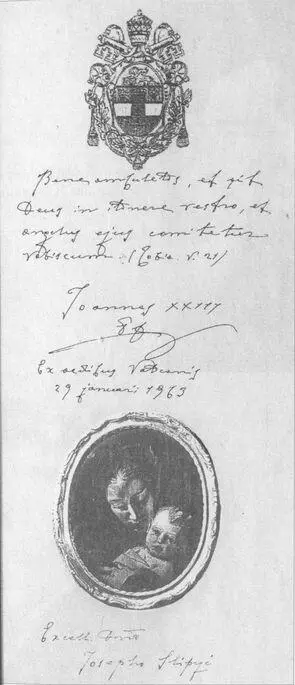 Bene ambuletis, et sit
Deus in itinere vestro, et
angelus ejus comitetur
vobiscum (Tobia V. 21)
Joannes XXIII
Ex aedibus Vaticanis
29 januarii 1963
Excell. Dno
Josepho Slipyi